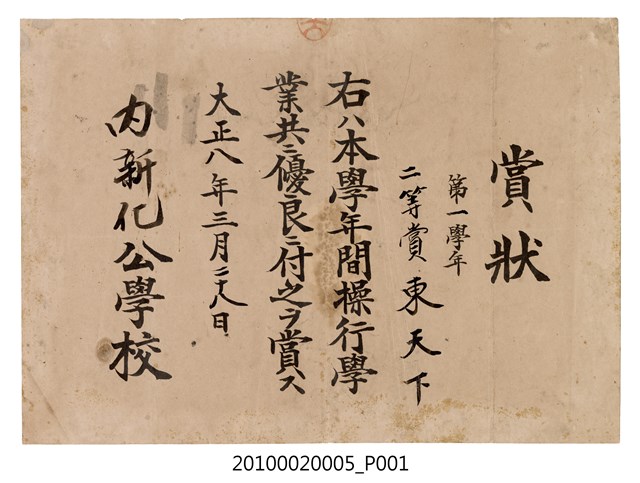 賞狀
第一學年
二等賞 東天下
右ハ本學年間操行學
業共ニ優良ニ付之ヲ賞ス
大正八年三月二十八日
内新化公學校
20100020005_P001